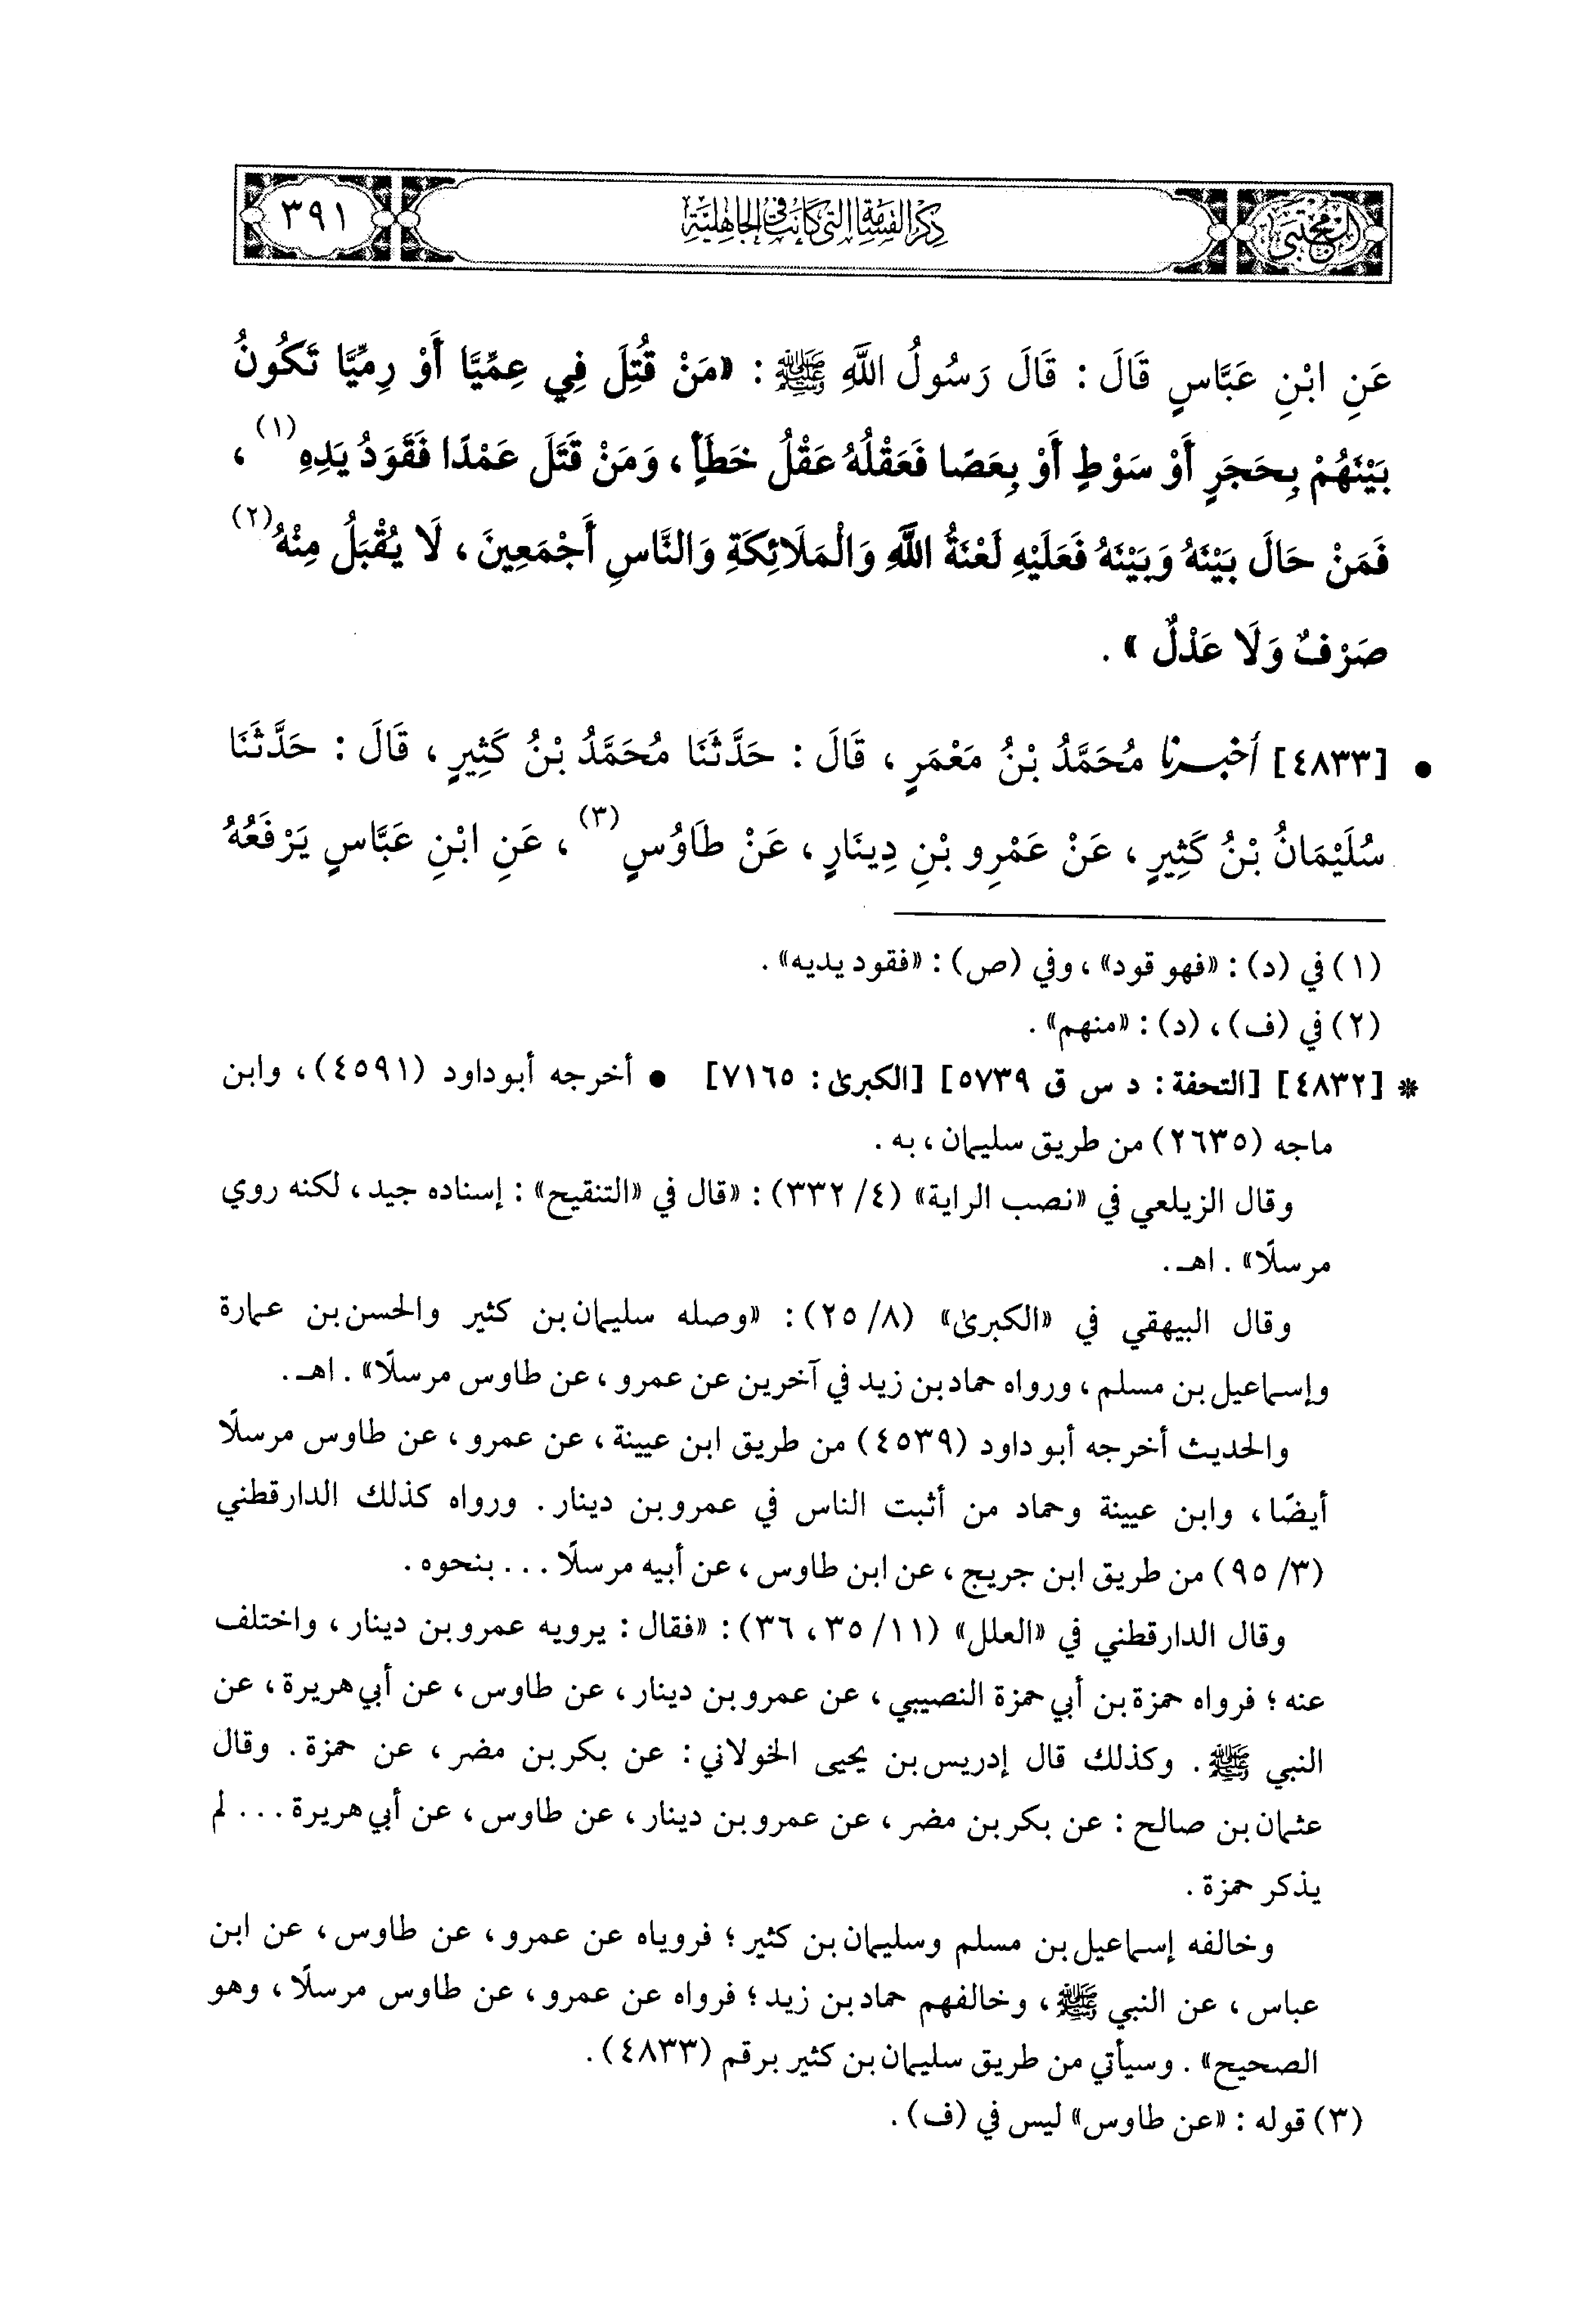 المجتبى
ذكر القسامة التي كانت في الجاهلية
٣٩١
عَنِ ابْنِ عَبَّاسٍ قَالَ : قَالَ رَسُولُ اللَّهِ ﷺ : «مَنْ قُتِلَ فِي عِمِّيَّا أَوْ رِمِّيَّا تَكُونُ
بَيْنَهُمْ بِحَجَرٍ أَوْ سَوْطٍ أَوْ بِعَصًا فَعَقْلُهُ عَقْلُ خَطَأٍ ، وَمَنْ قَتَلَ عَمْدًا فَقَوَدُ يَدِهِ(١) ،
فَمَنْ حَالَ بَيْنَهُ وَبَيْنَهُ فَعَلَيْهِ لَعْنَةُ اللَّهِ وَالْمَلَائِكَةِ وَالنَّاسِ أَجْمَعِينَ ، لَا يُقْبَلُ مِنْهُ(٢)
صَرْفٌ وَلَا عَدْلٌ » .
• [٤٨٣٣] أخبرنا مُحَمَّدُ بْنُ مَعْمَرٍ ، قَالَ : حَدَّثَنَا مُحَمَّدُ بْنُ كَثِيرٍ ، قَالَ : حَدَّثَنَا
سُلَيْمَانُ بْنُ كَثِيرٍ ، عَنْ عَمْرِو بْنِ دِينَارٍ ، عَنْ طَاوُسٍ(٣) ، عَنِ ابْنِ عَبَّاسٍ يَرْفَعُهُ
(١) في (د) : «فهو قود» ، وفي (ص) : «فقود يديه» .
(٢) في (ف) ، (د) : «منهم» .
* [٤٨٣٢] [التحفة : د س ق ٥٧٣٩] [الكبرى : ٧١٦٥] • أخرجه أبو داود (٤٥٩١) ، وابن
ماجه (٢٦٣٥) من طريق سليمان ، به .
وقال الزيلعي في «نصب الراية» (٤/ ٣٣٢) : «قال في «التنقيح» : إسناده جيد ، لكنه روي
مرسلًا» . اهـ .
وقال البيهقي في «الكبرى» (٨/ ٢٥) : «وصله سليمان بن كثير والحسن بن عمارة
وإسماعيل بن مسلم ، ورواه حماد بن زيد في آخرين عن عمرو ، عن طاوس مرسلًا» . اهـ .
والحديث أخرجه أبو داود (٤٥٣٩) من طريق ابن عيينة ، عن عمرو ، عن طاوس مرسلًا
أيضًا ، وابن عيينة وحماد من أثبت الناس في عمرو بن دينار . ورواه كذلك الدارقطني
(٣/ ٩٥) من طريق ابن جريج ، عن ابن طاوس ، عن أبيه مرسلًا . . . بنحوه .
وقال الدارقطني في «العلل» (١١/ ٣٥ ، ٣٦) : «فقال : يرويه عمرو بن دينار ، واختلف
عنه ؛ فرواه حمزة بن أبي حمزة النصيبي ، عن عمرو بن دينار ، عن طاوس ، عن أبي هريرة ، عن
النبي ﷺ . وكذلك قال إدريس بن يحيى الخولاني : عن بكر بن مضر ، عن حمزة . وقال
عثمان بن صالح : عن بكر بن مضر ، عن عمرو بن دينار ، عن طاوس ، عن أبي هريرة . . . لم
يذكر حمزة .
وخالفه إسماعيل بن مسلم وسليمان بن كثير ؛ فروياه عن عمرو ، عن طاوس ، عن ابن
عباس ، عن النبي ﷺ ، وخالفهم حماد بن زيد ؛ فرواه عن عمرو ، عن طاوس مرسلًا ، وهو
الصحيح» . وسيأتي من طريق سليمان بن كثير برقم (٤٨٣٣) .
(٣) قوله : «عن طاوس» ليس في (ف) .